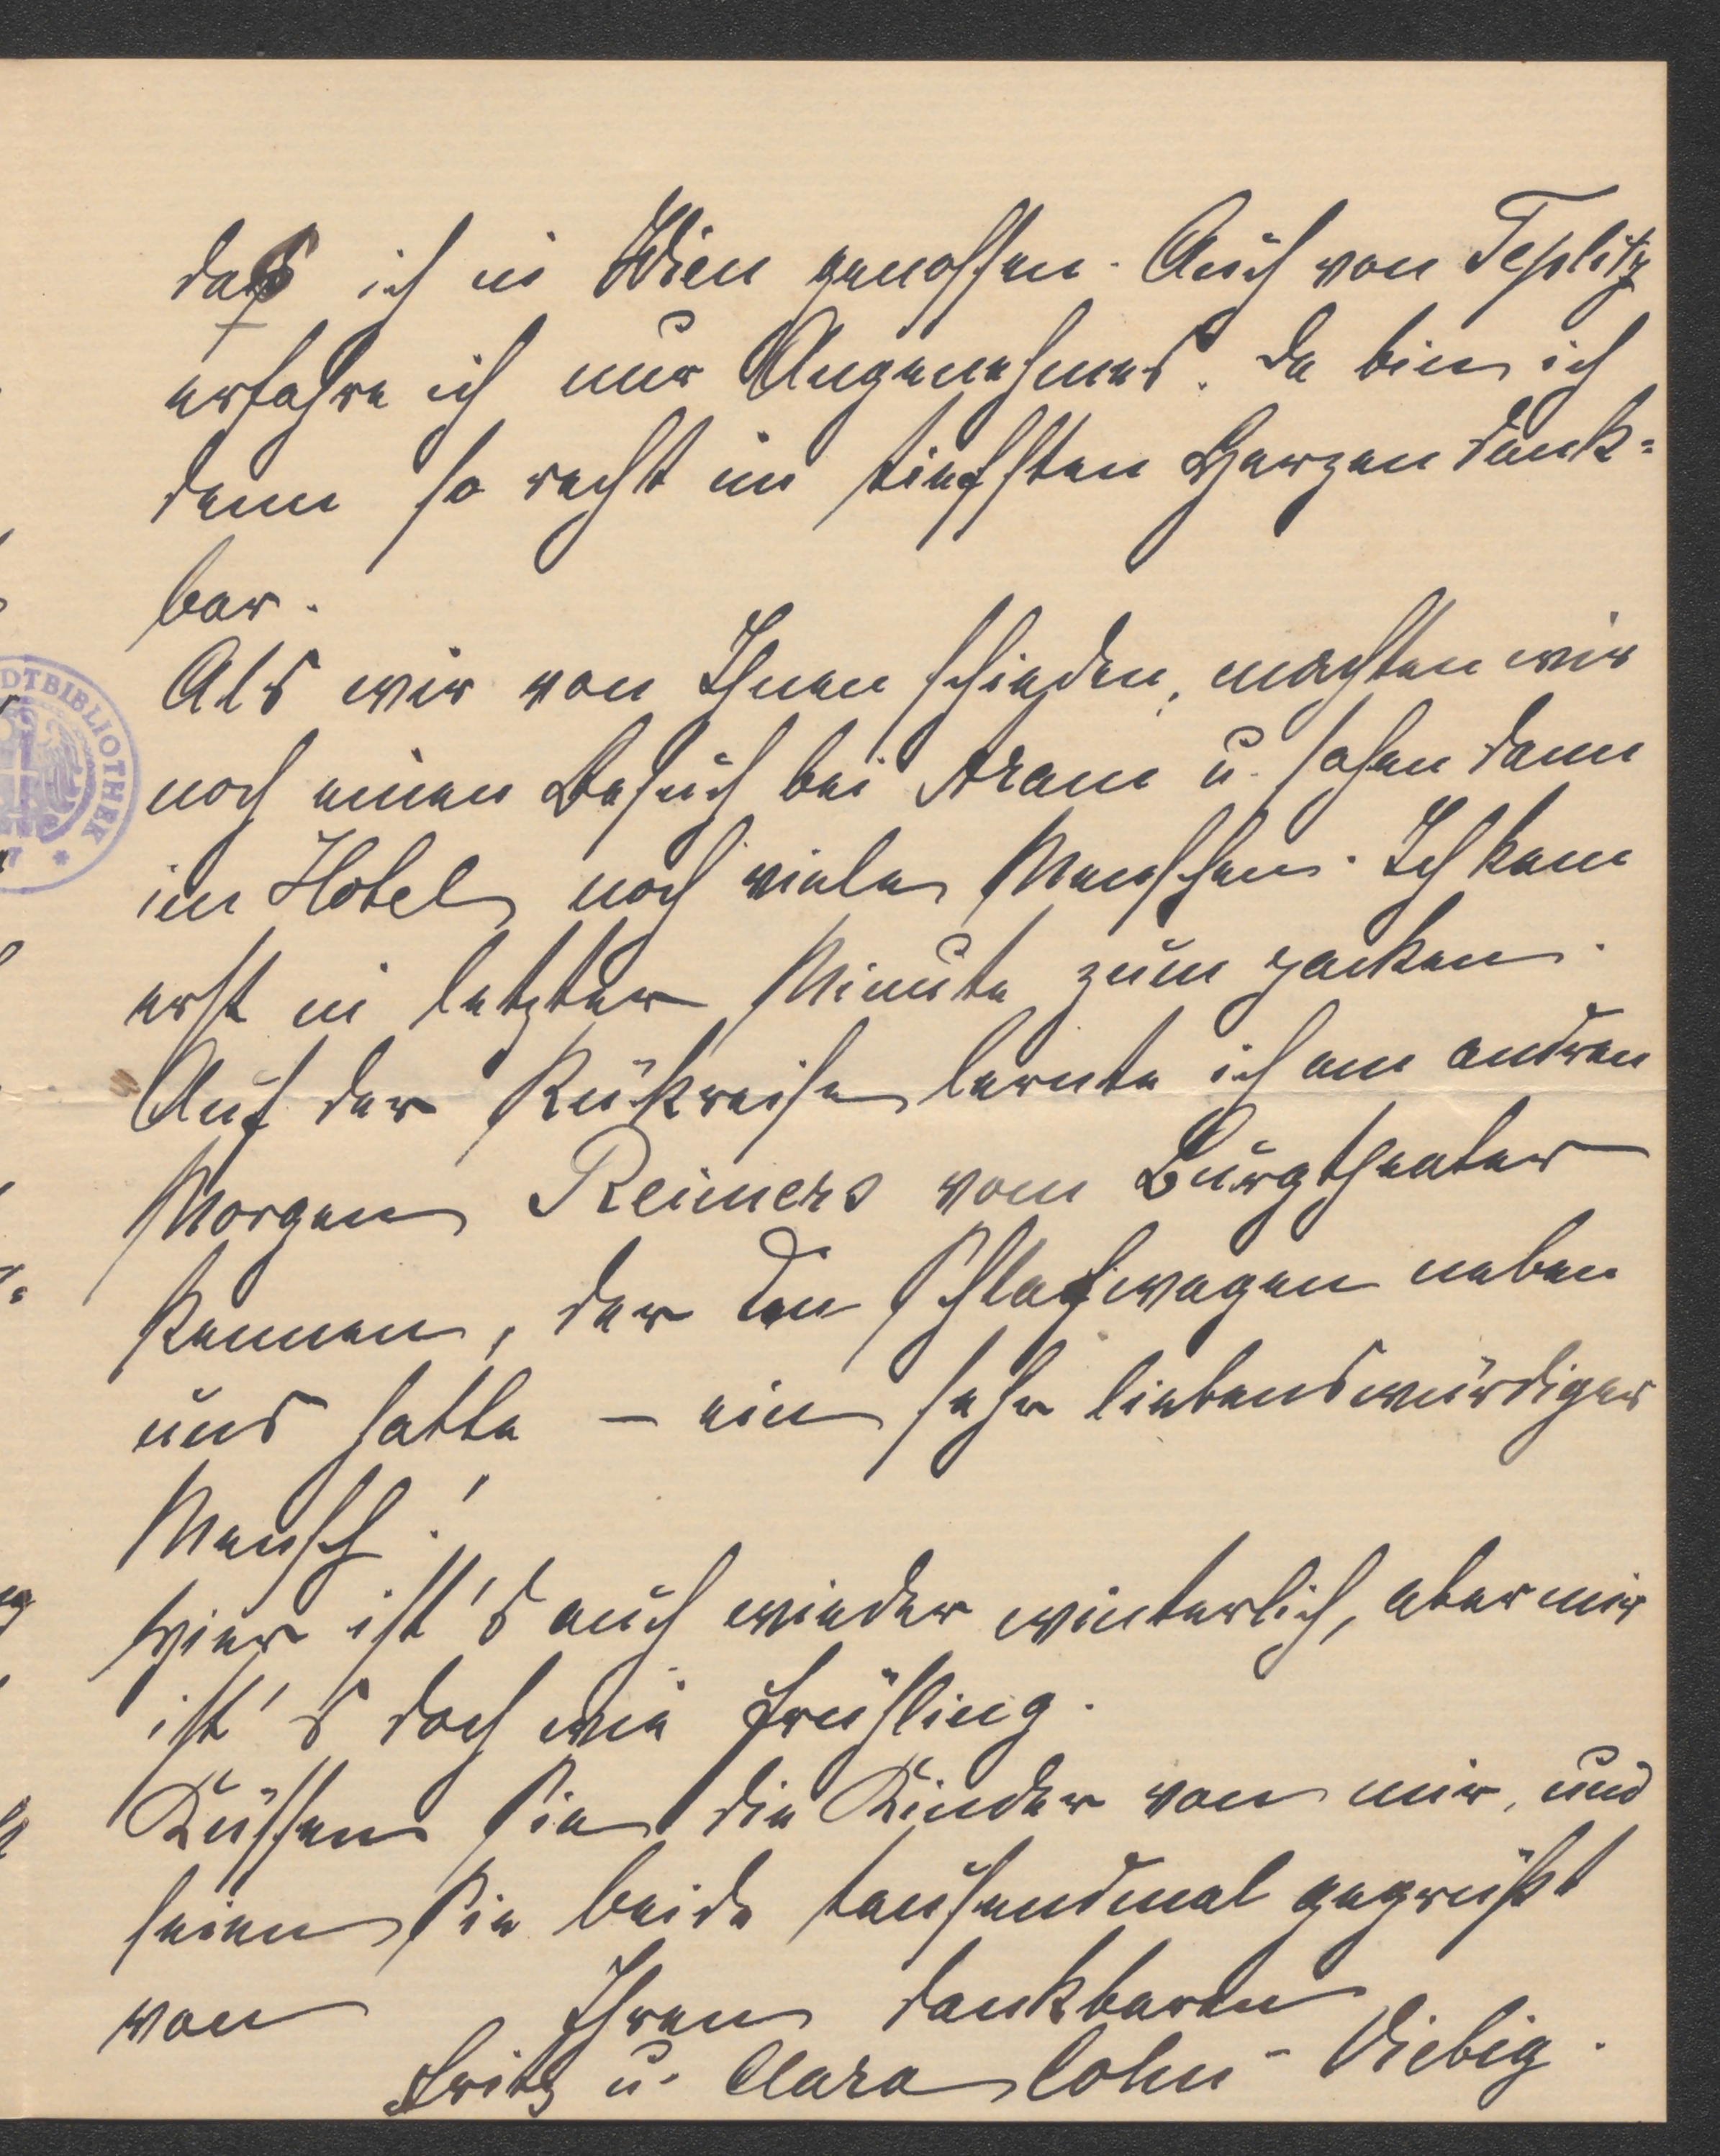 das ich in Wien genossen. Auch von Teplitz
erfahre ich nur Angenehmes. Da bin ich
denn so recht im tiefsten Herzen dank-
bar.
Als wir von Ihnen schieden, machten wir
noch einen Besuch bei Aram u. sahen dann
im Hotel noch viele Menschen. Ich kam
erst in letzter Minute zum packen.
Auf der Rückreise lernte ich am andren
Morgen Reimers vom Burgtheater
kennen, der den Schlafwagen neben
uns hatte – ein sehr liebenswürdiger
Mensch!
Hier ist's auch wieder winterlich, aber mir
ist's doch wie Frühling.
Küssen Sie die Kinder von mir, und
seien Sie beide tausendmal gegrüßt
von Ihren dankbaren
Fritz u. Clara Cohn-Viebig.
DTBIBLIOTHEK *